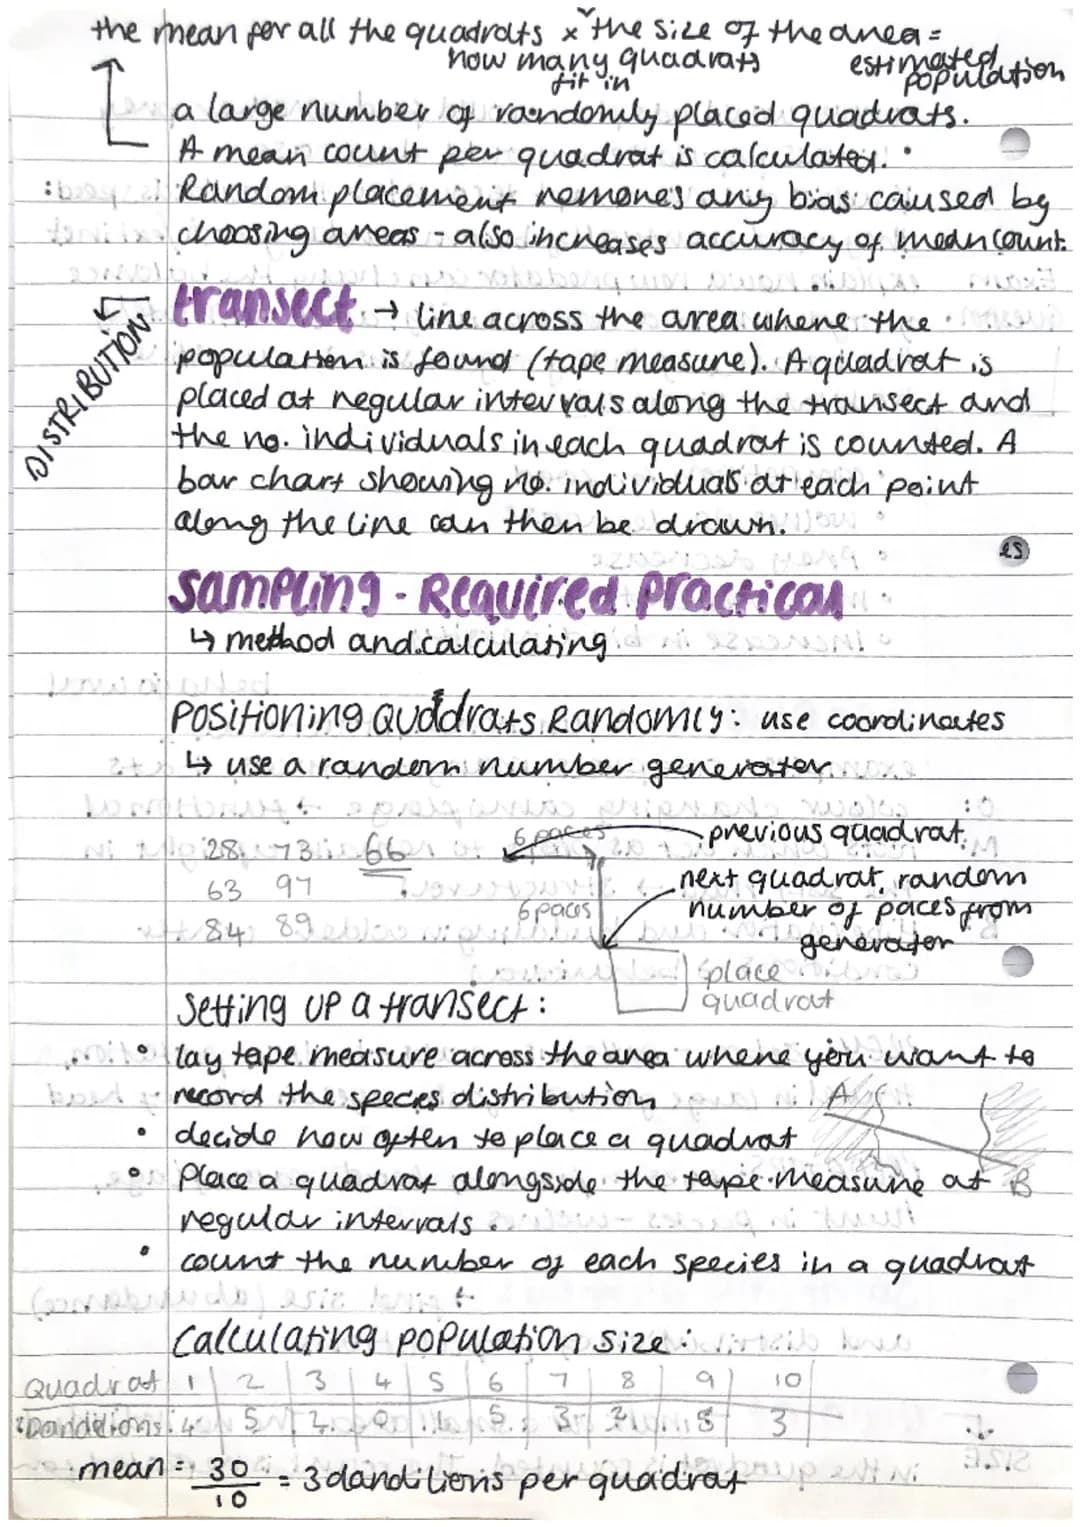 the mean for all the quadrats x the size of the area =
how many quadrats fit in
estimated population
a large number of randomly placed quadrats.
A mean count per quadrat is calculated.
Random placement removes any bias caused by
choosing areas - also increases accuracy of mean count.
DISTRIBUTION
transect → line across the area where the
population is found (tape measure). A quadrat is
placed at regular intervals along the transect and
the no. individuals in each quadrat is counted. A
bar chart showing no. individuals at each point
along the line can then be drawn.
Sampling - Required Practical
↳ method and calculating
Positioning Quadrats Randomly: use coordinates
↳ use a random number generator
28 73 66
63 97
84 89
6 paces
6 paces
previous quadrat.
next quadrat, random
number of paces from
generator
place
quadrat
Setting up a transect:
• lay tape measure across the area where you want to
record the species distribution
• decide how often to place a quadrat
• Place a quadrat alongside the tape measure at
regular intervals.
• count the number of each species in a quadrat
A
B
Calculating population size:
Quadrat 1 2 3 4 5 6 7 8 9 10
Dandelions 4 5 2 0 1 5 3 2 5 3
mean = 30/10 = 3 dandilions per quadrat